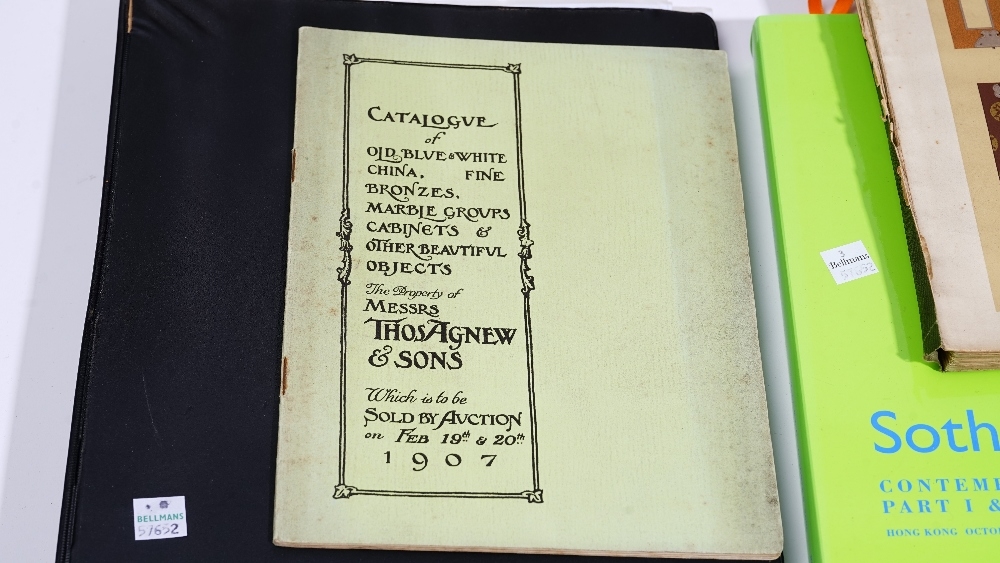 CATALOGUE
of
OLD BLUE & WHITE
CHINA, FINE
BRONZES,
MARBLE GROUPS
CABINETS &
OTHER BEAUTIFUL
OBJECTS
The Property of
MESSRS
THOS AGNEW
& SONS
Which is to be
SOLD BY AUCTION
on FEB 19th & 20th
1907
BELLMANS
57652
Bellmans
57652
Soth
CONTEMP
PART I &
HONG KONG OCTO